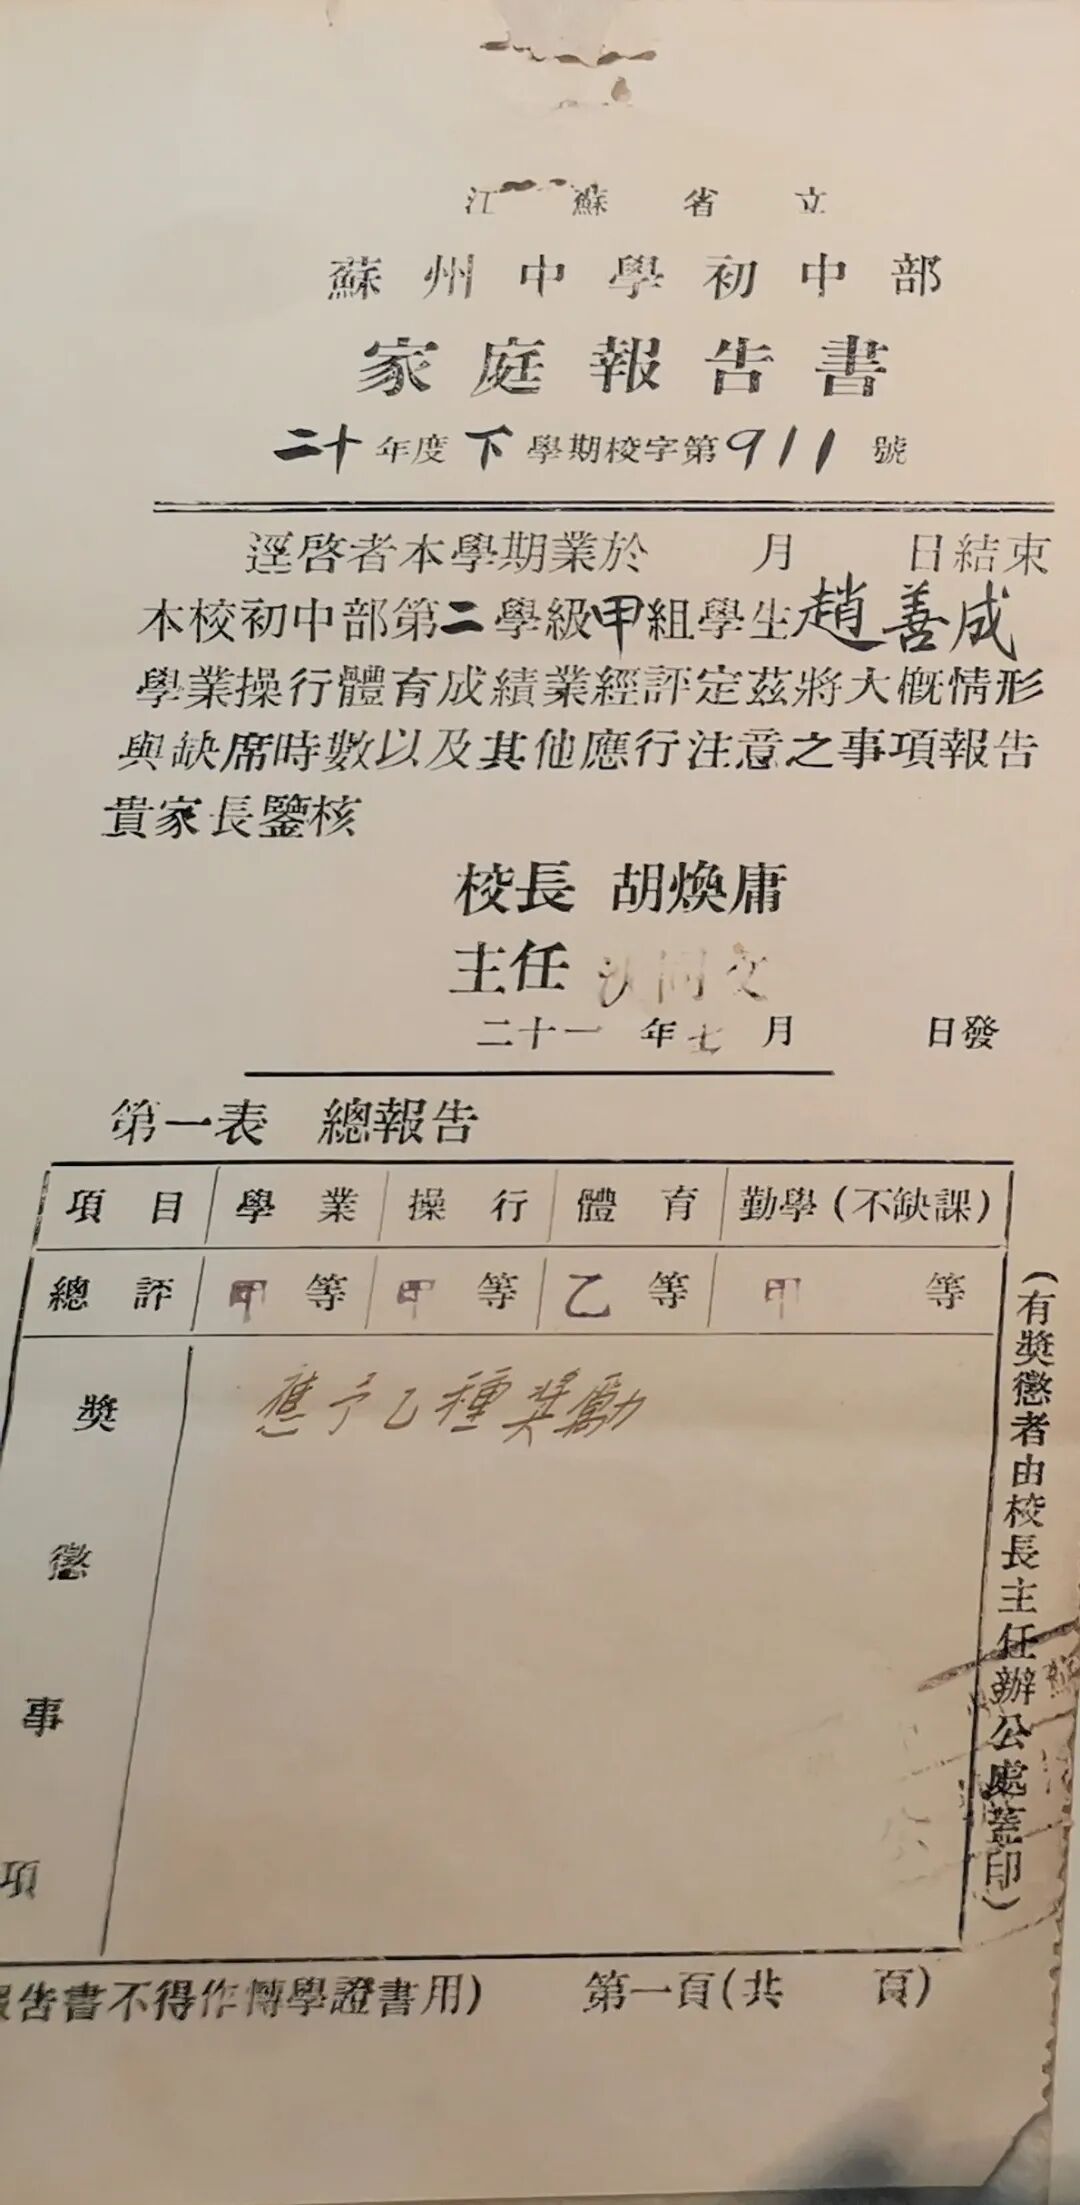 江蘇省立
蘇州中學初中部
家庭報告書
二十年度下學期校字第911號
逕啓者本學期業於　月　日結束
本校初中部第二學級甲組學生趙善成
學業操行體育成績業經評定茲將大概情形
與缺席時數以及其他應行注意之事項報告
貴家長鑒核
校長 胡煥庸
主任
二十一年七月　日發
第一表 總報告
項目 學業 操行 體育 勤學(不缺課)
總評 甲等 甲等 乙等 甲等
獎懲事項
應予乙種獎勵
(有獎懲者由校長主任辦公處蓋印)
報告書不得作轉學證書用) 第一頁(共　頁)